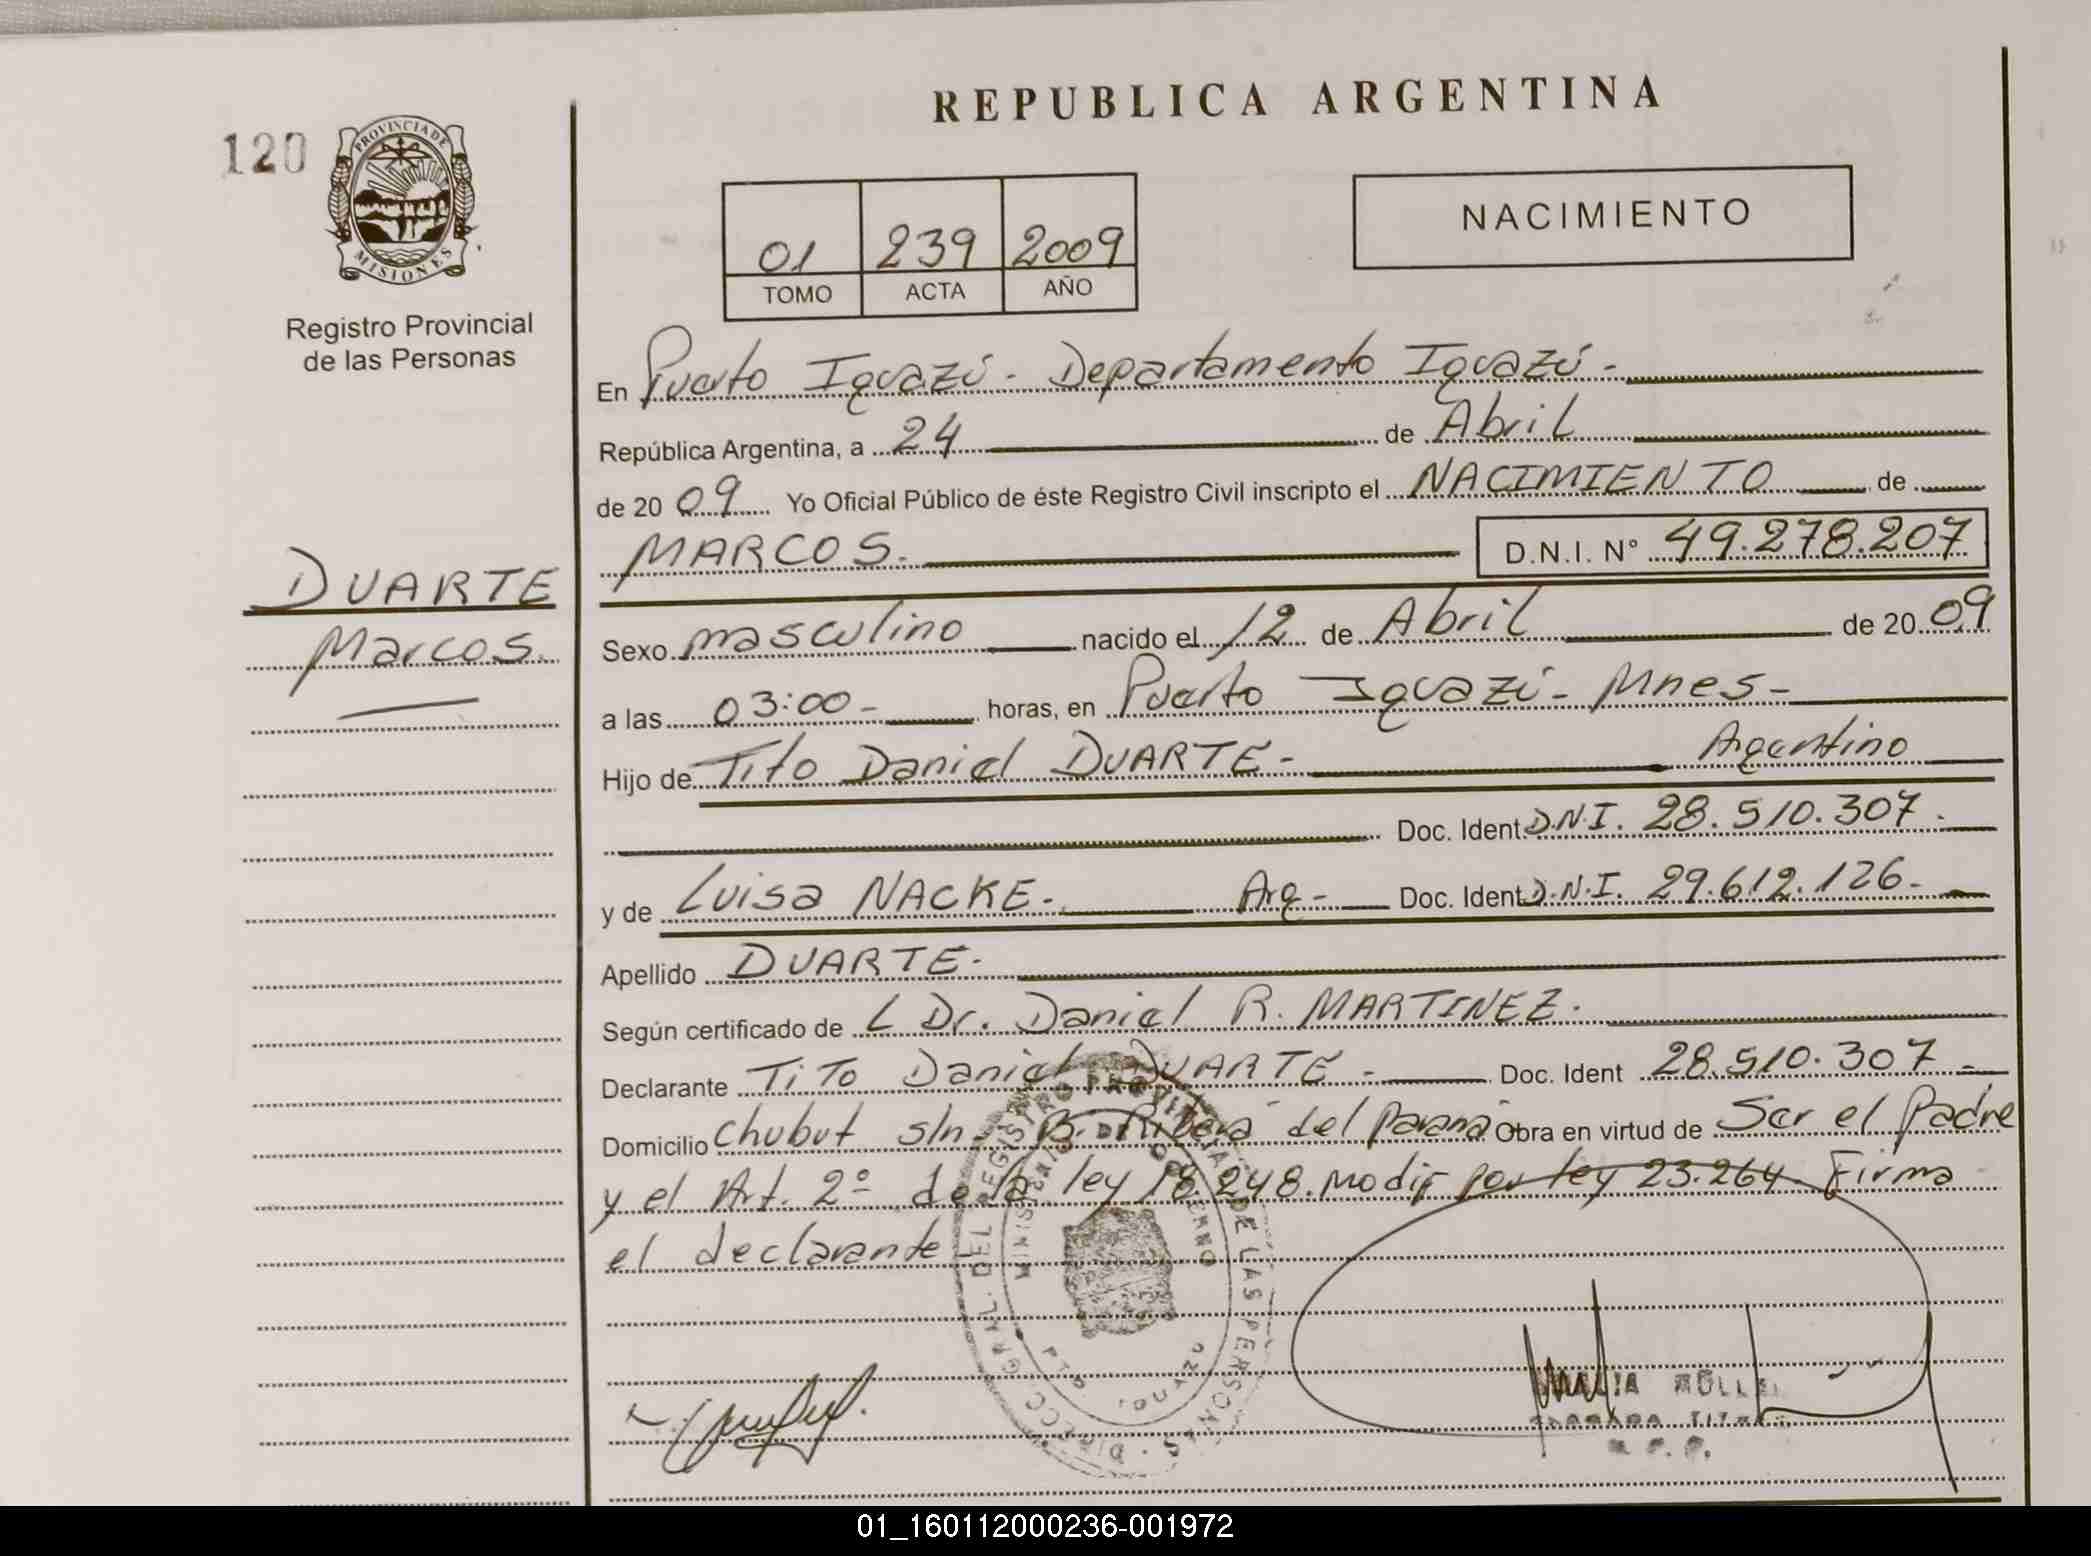 REPUBLICA ARGENTINA
120
PROVINCIA DE
MISIONES
Registro Provincial
de las Personas
01 239 2009
TOMO ACTA AÑO
NACIMIENTO
En Puerto Iguazú - Departamento Iguazú -
República Argentina, a 24 de Abril
de 20 09 Yo Oficial Público de éste Registro Civil inscripto el NACIMIENTO de
MARCOS. D.N.I. N° 49.278.207
DUARTE
Marcos.
Sexo masculino nacido el 12 de Abril de 20 09
a las 03:00 - horas, en Puerto Iguazú - Mnes -
Hijo de Tito Daniel DUARTE - Argentino
Doc. Ident D.N.I. 28.510.307.
y de Luisa NACKE - Arg - Doc. Ident D.N.I. 29.612.126 -
Apellido DUARTE.
Según certificado de L Dr. Daniel R. MARTINEZ.
Declarante TiTo Daniel DUARTE - Doc. Ident 28.510.307 -
Domicilio Chubut s/n - B. Ribera del Paraná Obra en virtud de Ser el Padre
y el Art. 2º de la ley 18.248. modif por ley 23.264. Firma
el declarante
DIRECC. GRAL. DEL REGISTRO PROVINCIAL DE LAS PERSONAS
MINISTERIO DE GOBIERNO
PTO. IGUAZU
01_160112000236-001972